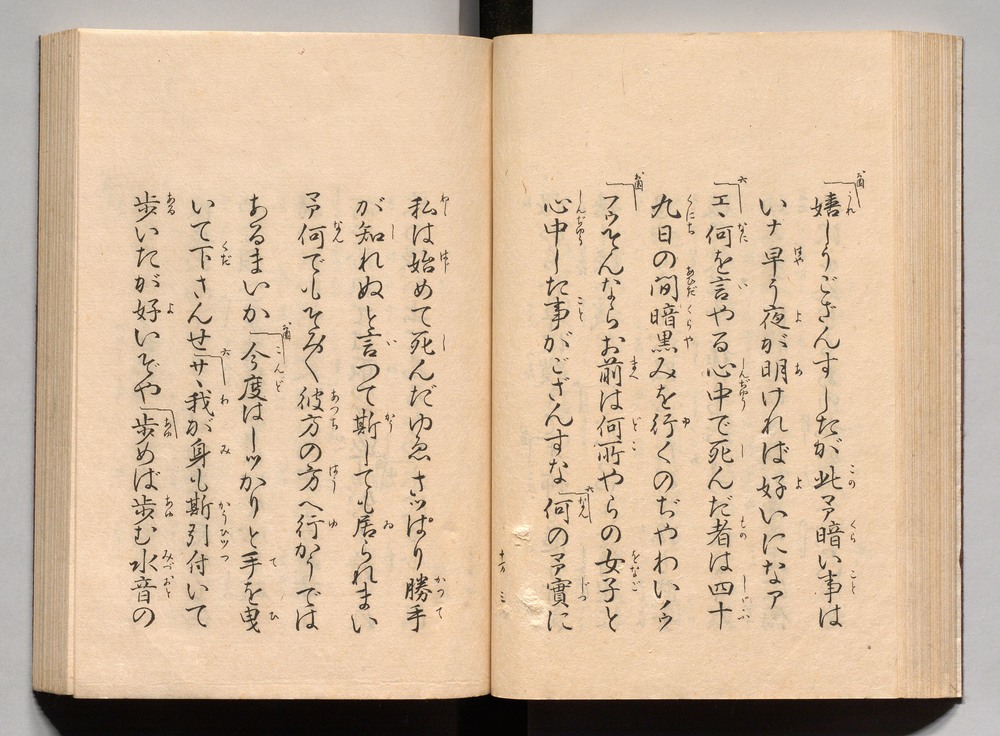 嬉しうござんすしたが此マア暗い事は
いナ早う夜が明ければ好いになア
六
エヽ何を言やる心中で死んだ者は四十
九日の間暗黒みを行くのぢやわいノウ
フウそんならお前は何所やらの女子と
心中した事がござんすな 六 何のマア實に
私は始めて死んだゆゑさツぱり勝手
が知れぬと言つて斯しても居られまい
マア何でもそみく彼方の方へ行かうでは
あるまいか 今度はしツかりと手を曳
いて下さんせ 六 サヽ我が身も斯引付いて
歩いたが好いぞや 歩めば歩む水音の